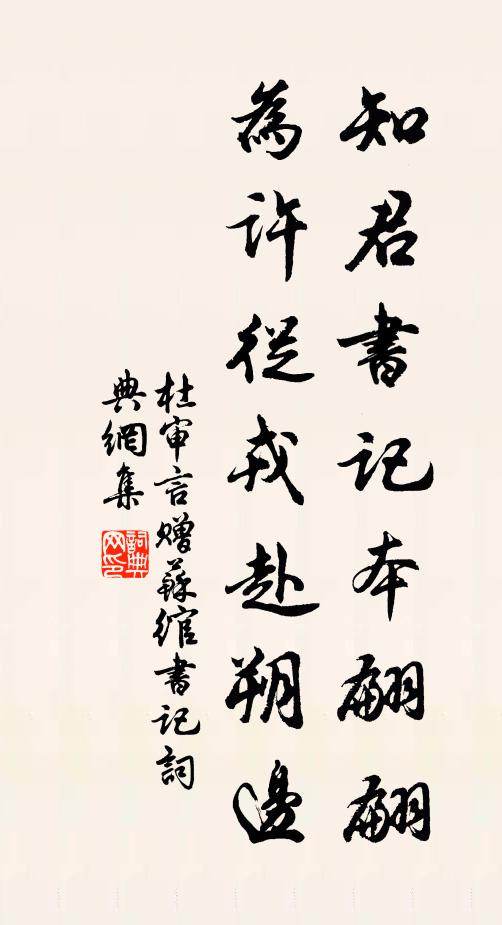 知君書記本翩翩
為許從戎赴朔邊
杜审言赠蘇綰書記詞
典網集
詞典网印